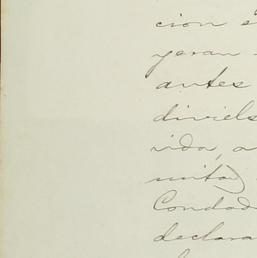 cion e
yeran
antes
vida, a
mitad
Condad
declara